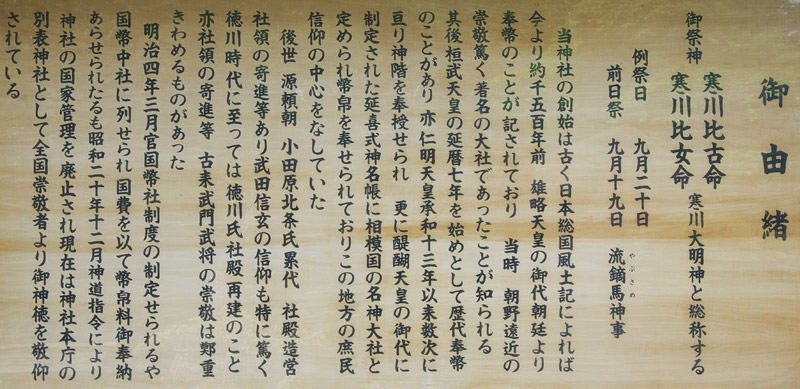 御由緒
御祭神 寒川比古命
寒川比女命 寒川大明神と総称する
例祭日 九月二十日
前日祭 九月十九日 流鏑馬神事
やぶさめ
当神社の創始は古く日本総国風土記によれば
今より約千五百年前 雄略天皇の御代朝廷より
奉幣のことが記されており 当時 朝野遠近の
崇敬篤く著名の大社であったことが知られる
其後桓武天皇の延暦七年を始めとして歴代奉幣
のことがあり 亦仁明天皇承和十三年以来数次に
亘り神階を奉授せられ 更に醍醐天皇の御代に
制定された延喜式神名帳に相模国の名神大社と
定められ幣帛を奉せられておりこの地方の庶民
信仰の中心をなしていた
後世 源頼朝 小田原北条氏累代 社殿造営
社領の寄進等あり武田信玄の信仰も特に篤く
徳川時代に至っては徳川氏社殿再建のこと
亦社領の寄進等 古来武門武将の崇敬は鄭重
きわめるものがあった
明治四年三月官国幣社制度の制定せられるや
国幣中社に列せられ国費を以て幣帛料御奉納
あらせられたるも昭和二十年十二月神道指令により
神社の国家管理を廃止され現在は神社本庁の
別表神社として全国崇敬者より御神徳を敬仰
されている